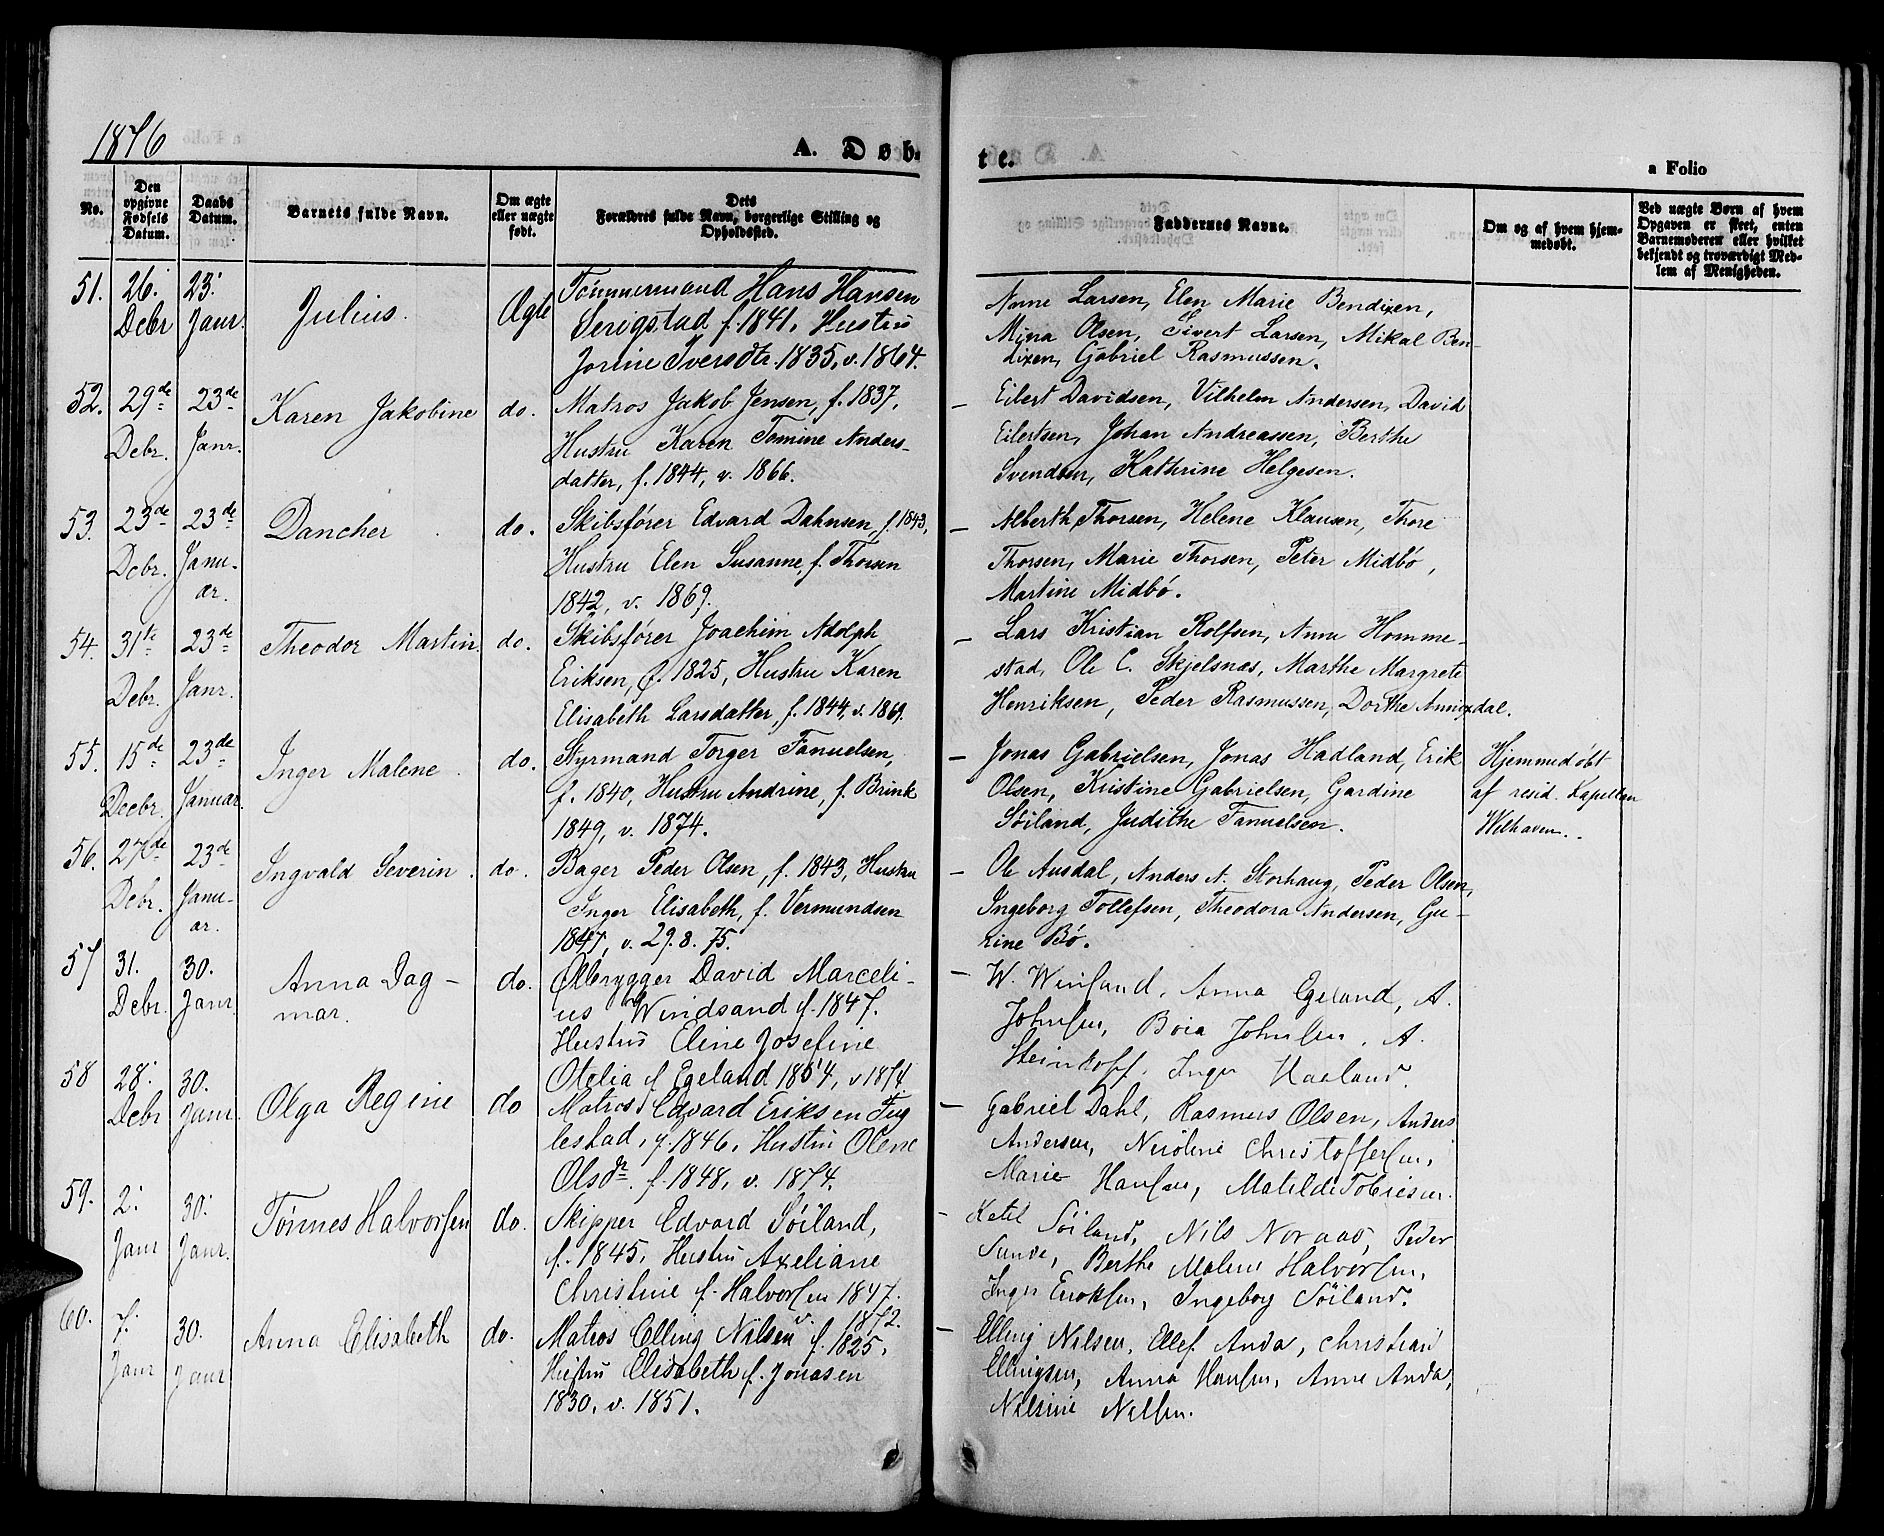 1876
A. Døb-
te.
a Folio
No.
Den opgivne Fødsels Datum.
Daabs Datum.
Barnets fulde Navn.
Om ægte eller uægte født.
Dets Forældres fulde Navn, borgerlige Stilling og Opholdssted.
Faddernes Navne.
Om og af hvem hjemmedøbt.
Ved uægte Børn af hvem Opgaven er skeet, enten Barnemoderen eller hvilket bekjendt og troværdigt Medlem af Menigheden.
51. 26. Debr 23. Janr. Julius. Ægte
Tømmermand Hans Hansen
Serigstad f. 1841. Hustru
Jorine Iversdtr. 1835, v. 1864.
Anne Larsen, Elen Marie Bendixen,
Mina Olsen, Sivert Larsen, Mikal Ben-
dixen, Gabriel Rasmussen.
52. 29de Debr. 23de Janr. Karen Jakobine do.
Matros Jakob Jensen, f. 1837,
Hustru Karen Tomine Anders-
datter, f. 1844, v. 1866.
– Eilert Davidsen, Vilhelm Andersen, David
Eilertsen, Johan Andreassen, Berthe
Svendsen, Kathrine Helgesen.
53. 23de Debr. 23de Janu-ær. Dancher do.
Skibsfører Edvard Dahnsen, f. 1843,
Hustru Elen Susanne, f. Thorsen
1842, v. 1869.
– Alberth Thorsen, Helene Klausen, Thore
Thorsen, Marie Thorsen, Peter Midbø,
Martine Midbø.
54. 31te Debr. 23de Janr. Theodor Martin. do.
Skibsfører Joachim Adolph
Eriksen, f. 1825, Hustru Karen
Elisabeth Larsdatter, f. 1844, v. 1869.
– Lars Kristian Rolfsen, Anne Homme-
stad, Ole C. Skjelsnæs, Marthe Margrete
Henriksen, Peder Rasmussen, Dorthe Anniqdal.
55. 15de Decbr. 23de Januar. Inger Malene. do.
Styrmand Torger Fanuelsen,
f. 1840, Hustru Andrine, f. Brink
1849, v. 1874.
– Jonas Gabrielsen, Jonas Hadland, Erik
Olsen, Kristine Gabrielsen, Gardine
Søiland, Judithe Fanuelsen.
Hjemmedøbt
af resid. Kapellan
Welhaven.
56. 27de Debr. 23de Janu-ar. Ingvald Severin. do.
Bager Peder Olsen, f. 1843, Hustru
Inger Elisabeth, f. Vermundsen
1847, v. 29. 8. 75.
– Ole Ausdal, Anders A. Storhaug, Peder Olsen,
Ingeborg Tollefsen, Theodora Andersen, Gu-
rine Bø.
57 31. Debr. 30. Janr Anna Dag-
mar. do.
Ølbrygger David Marceli-
us Windsand f. 1847.
Hustru Eline Josefine
Otelia f Egeland 1854, v 1874
– W. Winsand, Anna Egeland, A.
Johnsen, Boia Johnsen, A.
Steinkopf, Inger Haaland.
58 28. Debr 30. Janr. Olga Regine do
Matros Edvard Eriksen Fug
lestad, f. 1846, Hustru Olene
Olsdr. f. 1848, v. 1874.
– Gabriel Dahl, Rasmus Olsen, Anders
Andersen, Nicoline Christoffersen,
Marie Hansen, Matilde Tobiesen.
59. 2. Janr 30. Janr. Tønnes Halvorsen do.
Skipper Edvard Søiland,
f. 1845, Hustru Axeliane
Christine f. Halvorsen 1847.
v. 1872.
– Ketil Søiland, Nils Noraas, Peder
Sunde, Berthe Malene Halvorsen,
Inger Eriksen, Ingeborg Søiland.
60. 7. Janr 30. Janr Anna Elisabeth do.
Matros Elling Nilsen f. 1825,
Hustru Elisabeth f. Jonasen
1830, v. 1851.
– Elling Nilsen, Ellef Anda, Christian
Ellingsen, Anna Hansen, Anne Anda,
Nilsine Nilsen.